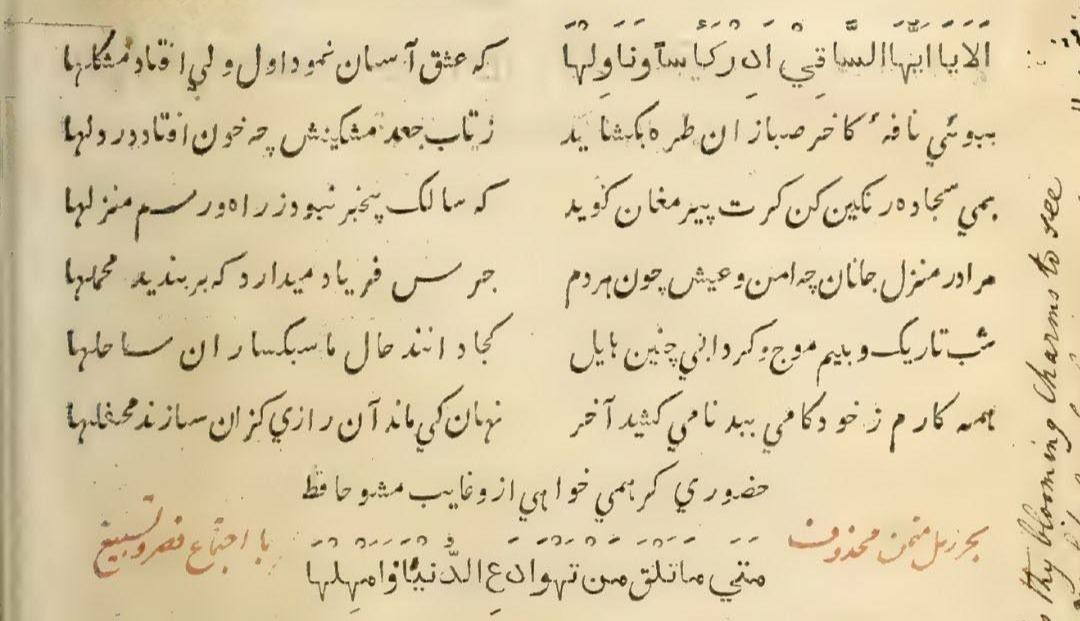 اَلَا یَا اَیُّهَا السَّاقِي اَدِرْ کَاْسًا وَنَاوِلْهَا که عشق آسان نمود اول ولي افتاد مشکلها
ببوئي نافهٔ کاخر صبا زان طره بکشاید ز تاب جعد مشکینش چه خون افتاد در دلها
بمي سجاده رنکین کن کرت پیر مغان کوید که سالک بیخبر نبود ز راه و رسم منزلها
مرا در منزل جانان چه امن و عیش چون هر دم جرس فریاد میدارد که بربندید محملها
شب تاریک و بیم موج و کردابي چنین هایل کجا دانند حال ما سبکساران ساحلها
همه کارم ز خود کامي ببد نامي کشید آخر نهان کي ماند آن رازي کزان سازند محفلها
حضوري کر همي خواهي ازو غایب مشو حافظ
بحر رمل مثمن محذوف
با اجتماع قصر و تسبیغ
مَتَي مَا تَلْقَ مَنْ تَهْوَا دَعِ الدُّنْیَا وَاَمْهِلْهَا
thy blooming charms to see